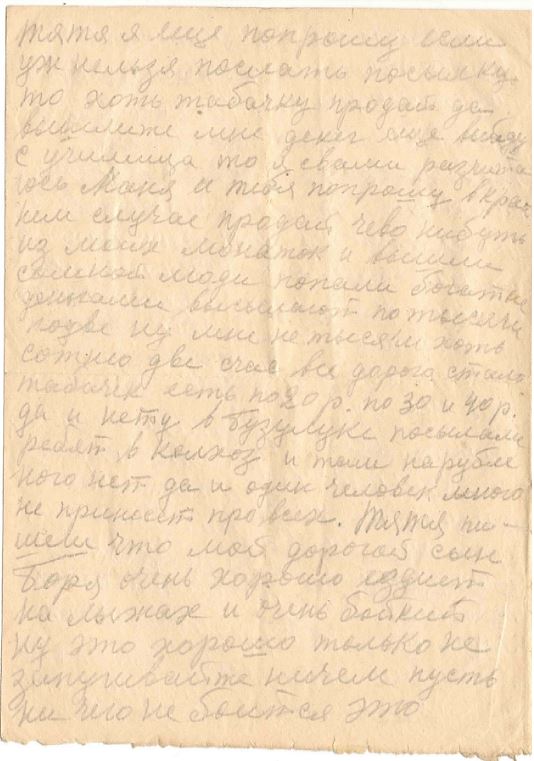 тятя я еще попрошу если
уж нельзя послать посылку
то хоть табачку продай да
вышлите мне денег еще выйду
с училища то я свами разчита
юсь Маня и тебя попрошу вкрай
ним случае продай чево нибуть
из моих манаток и вышли
самной люди попали богатые
деньгами высылают по тысячи
подве ну мне не тысячи хоть
сотню две счас все дорога стала
табачек есть по 20 р. по 30 и 40 р.
да и нету в Бузулуке посылали
ребят в колхоз и там нарубле
ного нет да и один человек много
не принесет про всех. Тятя пи-
шеш что мой дорогой сын
Боря очень хорошо ездит
на лыжах и очень бойкий
ну это хорошо только не
запугивайте ничем пусть
ни чего не боится это